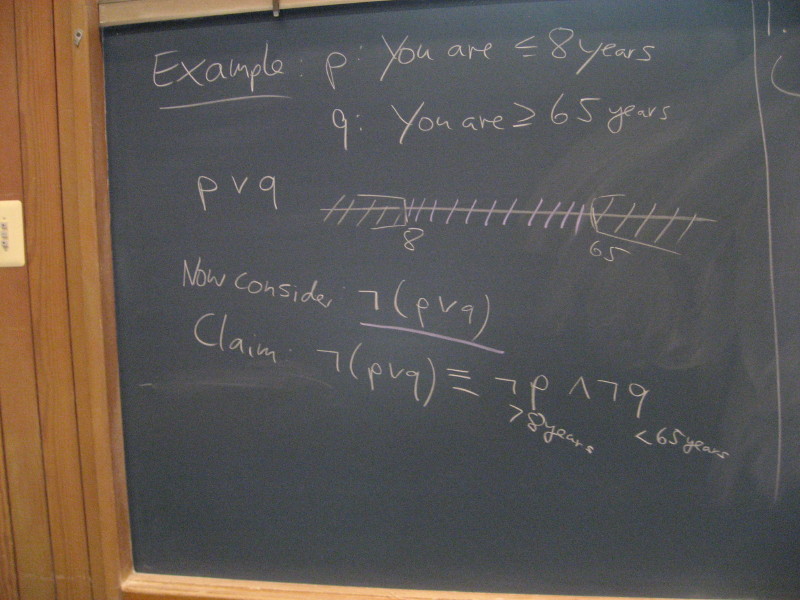 Example: p: You are ≤ 8 years
q: You are ≥ 65 years
p ∨ q
8 65
Now consider: ¬(p∨q)
Claim: ¬(p∨q) ≡ ¬p ∧ ¬q
>8years <65years